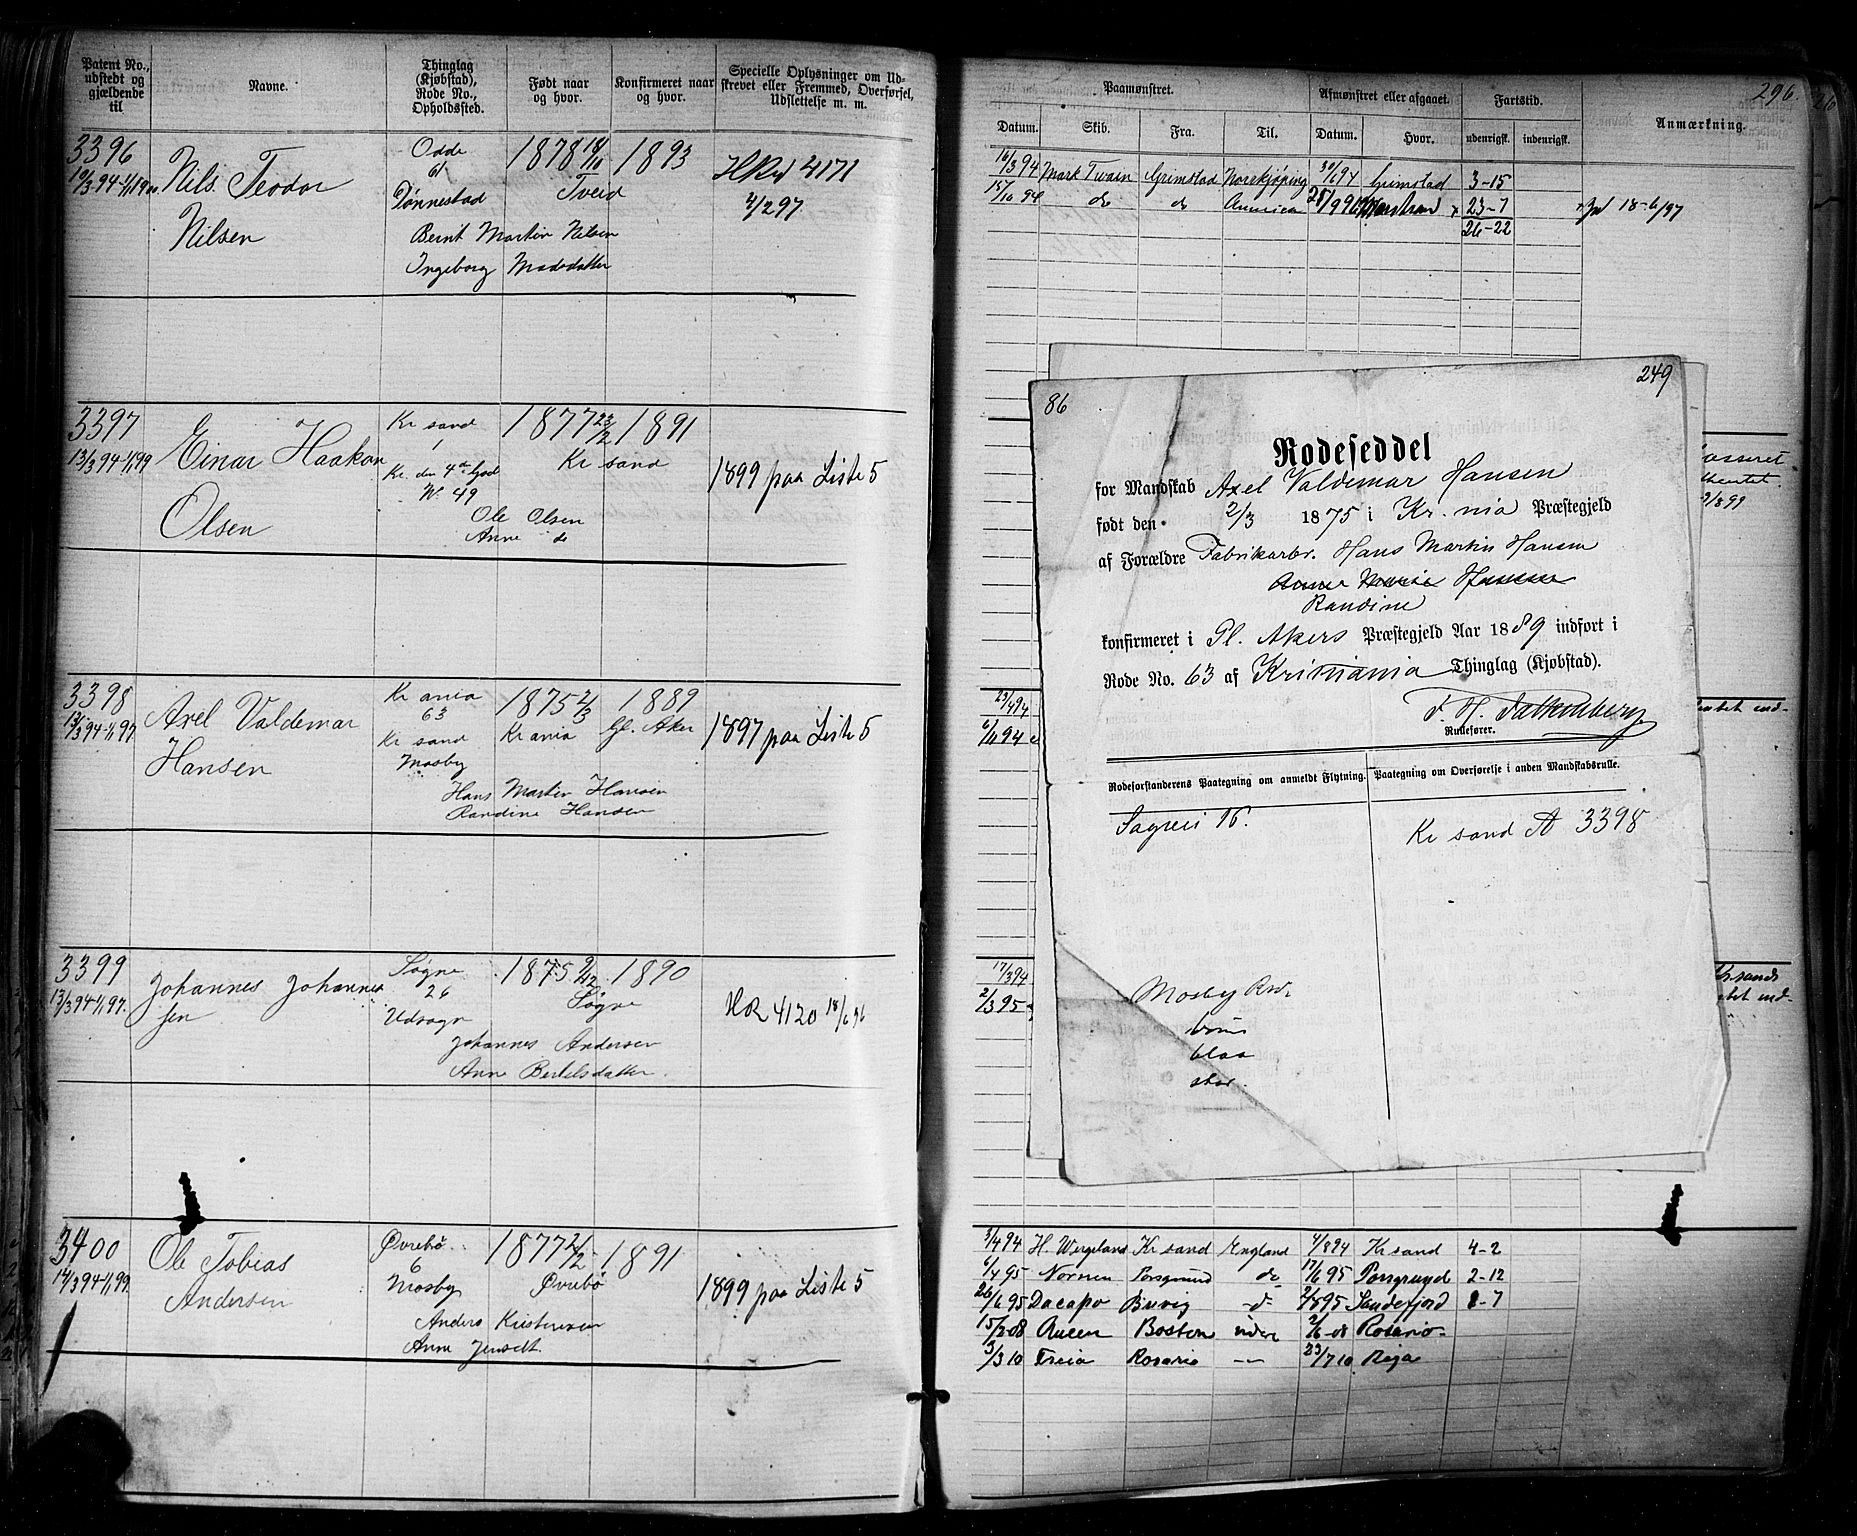 Patent No., udstedt og gjældende til
Navne.
Thinglag (Kjøbstad), Rode No., Opholdssted.
Født naar og hvor.
Konfirmeret naar og hvor.
Specielle Oplysninger om Udskrevet eller Fremmed, Overførsel, Udslettelse m. m.
3396
Odde
1878 18/11
1893
HRd 4171
10/3 94-1/1 19
Nils Teodor
61
Tveid
4/2 97
Tønnestad
Nilsen
Bernt Martin Nilsen
Ingeborg Madsdatter
3397
Kr sand
1877 23/2
1891
13/3 94-1/1 99
Einar Haakon
1
Kr sand
1899 paa Liste 5
Kr den 4de
W. 49
Olsen
Ole Olsen
Anne do
3398
Kr ania
1875 2/3
1889
13/3 94-1/1 97
Axel Valdemar
63
Kr ania
Gl. Aker
1897 paa Liste 5
Kr sand
Hansen
Mosby
Hans Martin Hansen
Randine Hansen
3399
Søgne
1875 9/12
1890
13/3 94-1/1 97.
Johannes Johannes
26
Søgne
HR 4120 18/6 96
sen
Udsogn
Johannes Andersen
Anne Bertelsdatter.
3400
Øvrebø
1877 21/2
1891
14/3 94-1/1 99.
Ole Tobias
6
Øvrebø
1899 paa Liste 5
Mosby
Andersen
Anders Kristensen
Anne Jensdt.
296.
Paamønstret.
Afmønstret eller afgaaet.
Fartstid.
Anmærkning.
Datum. Skib. Fra. Til. Datum. Hvor. udenrigsk. indenrigsk.
16/3 94 Mark Twain Grimstad Norrkjøping 30/6 94 Grimstad 3-15
15/10 94 do do America 23-7 18-6/97
26-22
23/4 94
6/11 94
17/3 94
2/3 95
3/4 94 H. Wergeland Kr sand England 4/8 94 Kr sand 4-2
6/4 95 Nornen Porsgrund do 17/6 95 Porsgrund 2-12
26/6 95 Dacapo Buvig -d- 2/8 95 Sandefjord 1-7
15/2 08 Queen Boston 2/6 08 Rosario
3/3 10 Freia Rosario -"- 23/7 10 Riga
86
249
Rodeseddel
for Mandskab Axel Valdemar Hansen
født den 2/3 1875 i Kr.nia Præstegjeld
af Forældre Fabrikarbr. Hans Martin Hansen
Anne Marie Hansen
Randine
konfirmeret i Gl. Akers Præstegjeld Aar 1889 indført i
Rode No. 63 af Kristiania Thinglag (Kjøbstad).
F. H. Falkenberg
Rodefører.
Rodeforstanderens Paategning om anmeldt Flytning.
Paategning om Overførelse i anden Mandskabsrulle.
Sagveien 16.
Kr sand A 3398
Mosby
brun
blaa
stor.